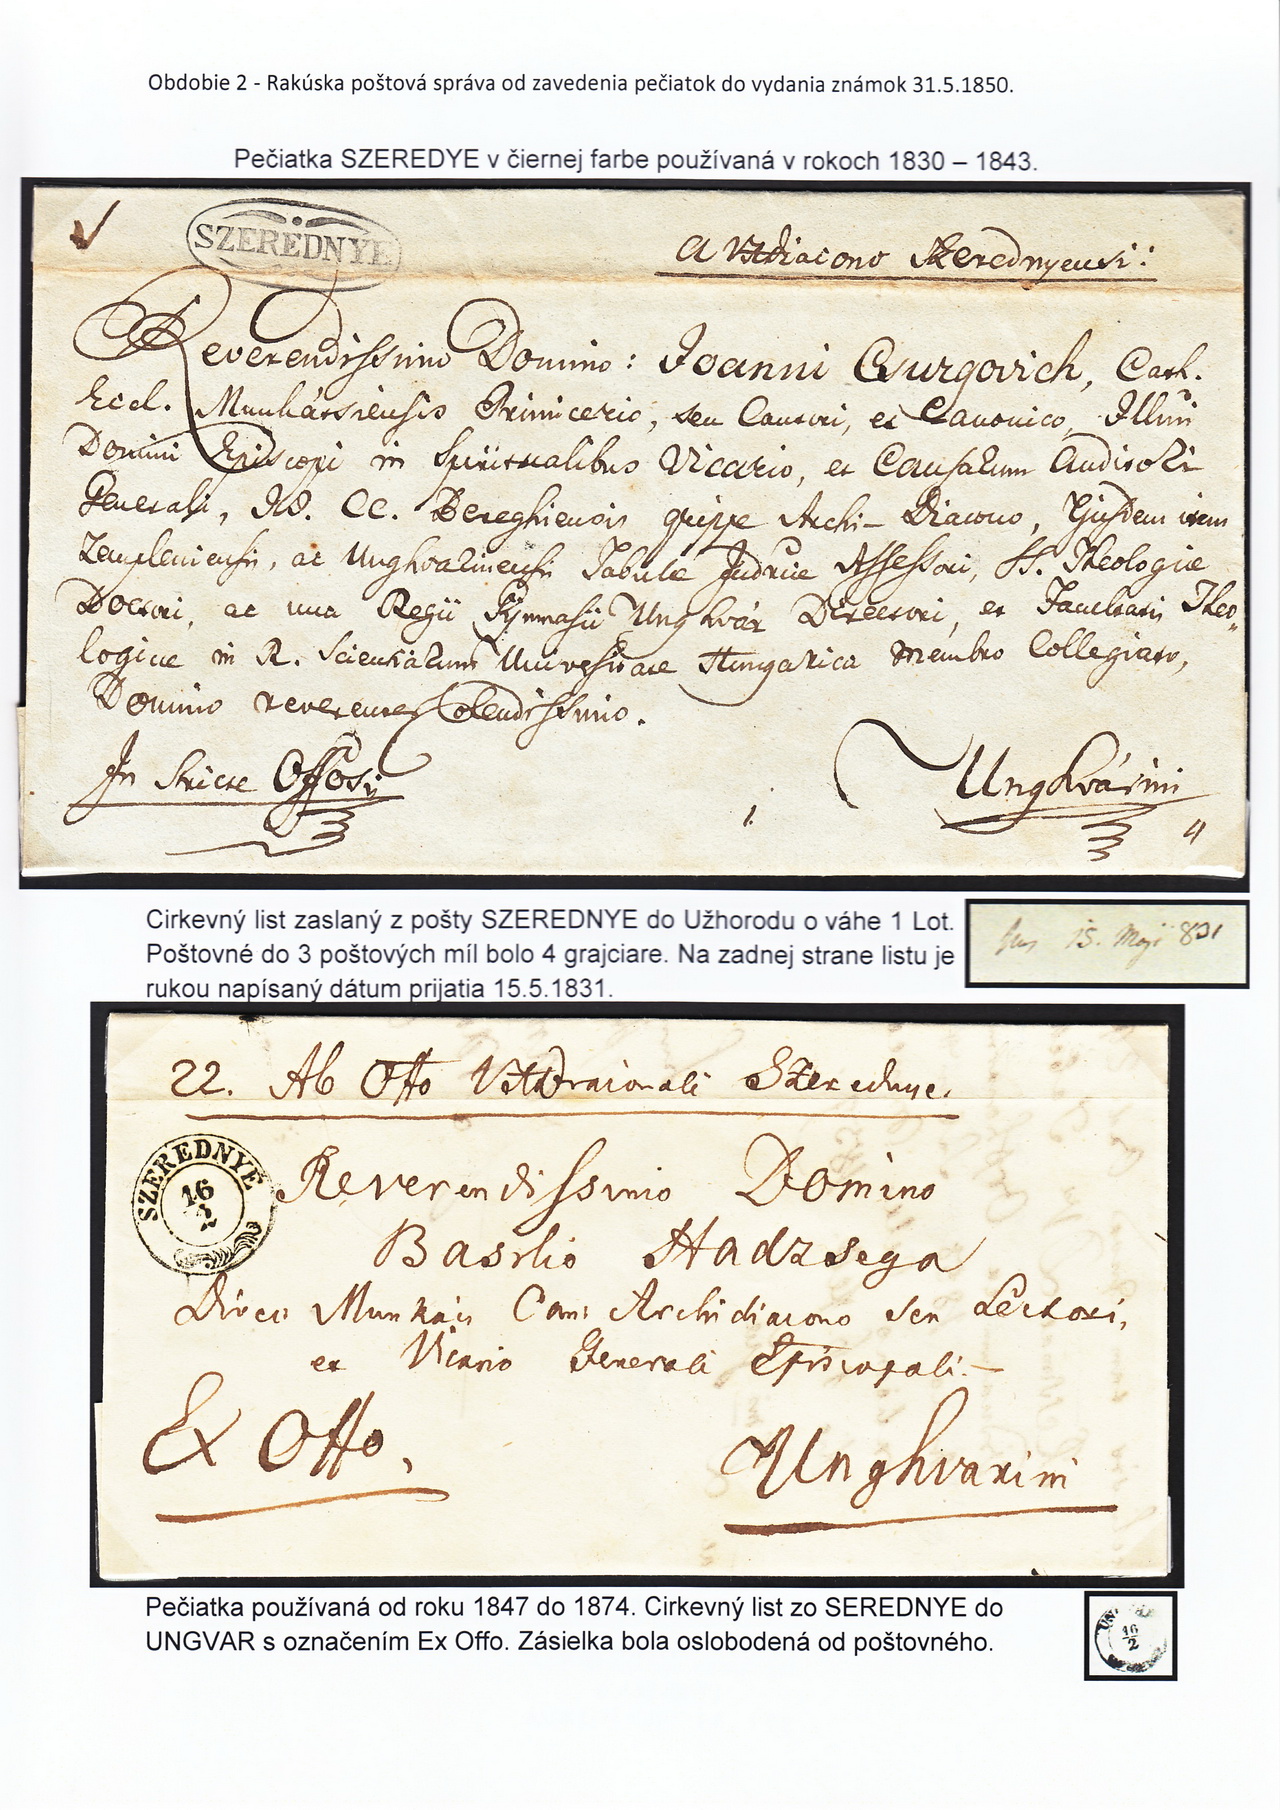 Obdobie 2 - Rakúska poštová správa od zavedenia pečiatok do vydania známok 31.5.1850.
Pečiatka SZEREDYE v čiernej farbe používaná v rokoch 1830 – 1843.
SZEREDNYE
A Szerednyensi:
Reverendissimo Domino: Joanni Csurgovich, Cath.
Eccl. Munkácsiensis Primicerio, seu Cantori, et Canonico, Illmi
Domini Episcopi in Spiritualibus Vicario, et Causarum Auditori
Generali, Bereghiensis quippe Archi-Diacono, Ejusdem item
Zempleniensis, ac Unghvariensis Tabulae Judriae Assessori, SS. Theologiae
Doctori, ac una Regii Gymnasii Unghvár Directori, et Facultatis Theo„
logicae in R. Scientiarum Universitate Hungarica membro Collegiato,
Domino reverenter Colendissimo.
In Offosis
Unghvárini
1.
4
Cirkevný list zaslaný z pošty SZEREDNYE do Užhorodu o váhe 1 Lot.
Poštovné do 3 poštových míl bolo 4 grajciare. Na zadnej strane listu je
rukou napísaný dátum prijatia 15.5.1831.
15. Maji 831
22. Ab Offo Szerednye.
SZEREDNYE
16
2
Reverendissimo Domino
Basilio Hadzsega
Munkács Archidiacono seu Lectori,
et Vicario Generali Episcopali.—
Ex Offo,
Unghvarini
Pečiatka používaná od roku 1847 do 1874. Cirkevný list zo SEREDNYE do
UNGVAR s označením Ex Offo. Zásielka bola oslobodená od poštovného.
16
2